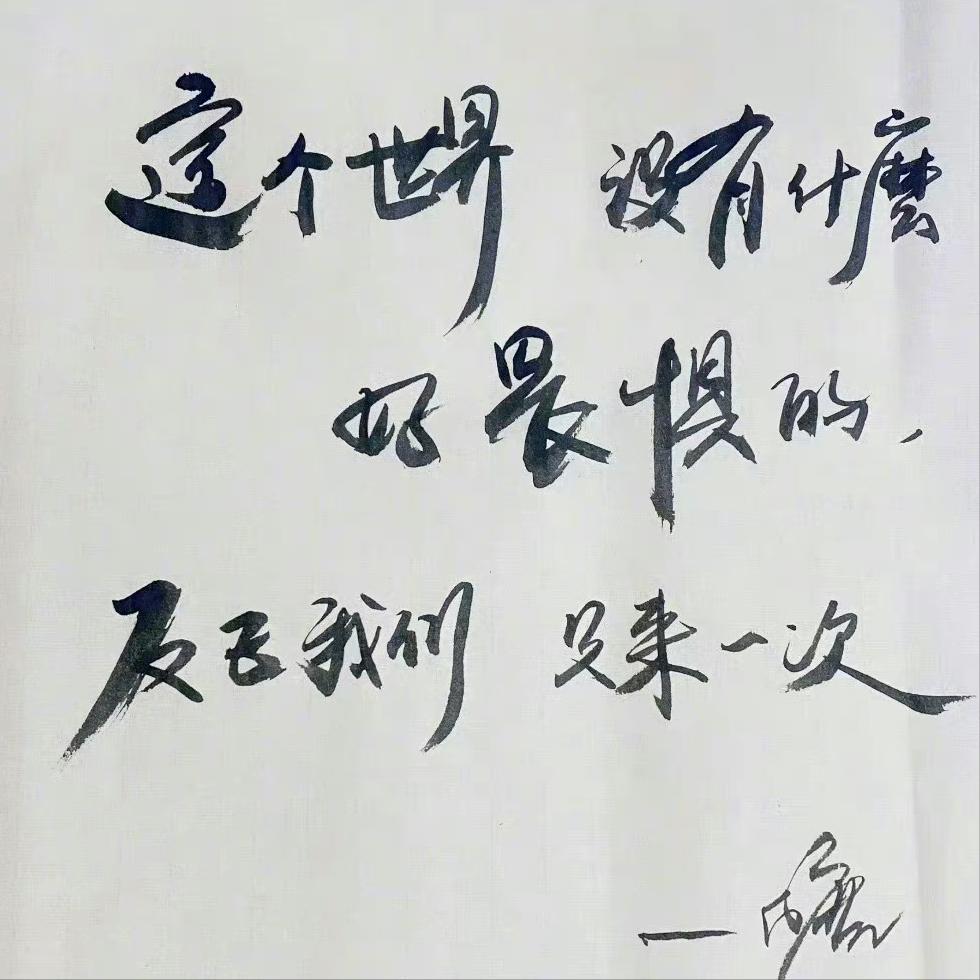 这个世界 没有什麽
好畏惧的,
反正我们 只来一次
一